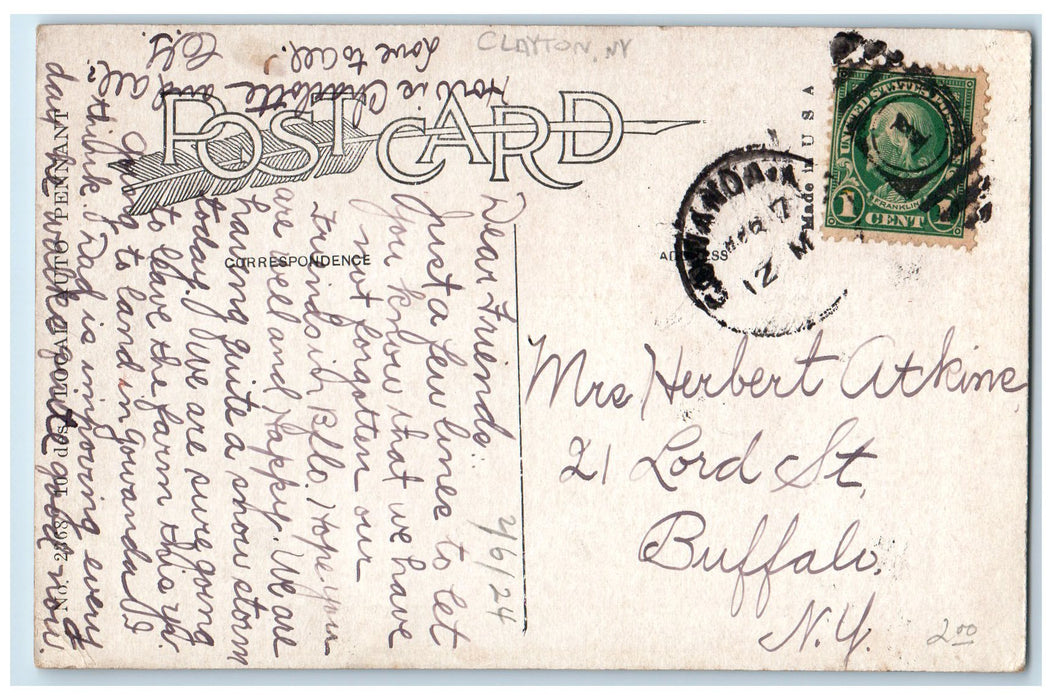 CLAYTON, NY
POST CARD
CORRESPONDENCE
ADDRESS
Made in U S A
UNITED STATES
FRANKLIN
1 CENT 1
GOWANDA
12 M
Mrs Herbert Atkins
21 Lord St
Buffalo.
N.Y.
2.00
2/6/24
Dear Friends:
Just a few lines to let
you know that we have
not forgotten our
friends in Bflo. Hope you
are well and Happy. We are
having quite a snow storm
today. We are sure going
to leave the farm this yr.
Going to land in Gowanda I
think. Dad is improving every
day he works quite good now.
How is Charlotte and all.
Love to all.
No. 2168 10 des. LOCAL AUTO PENNANT